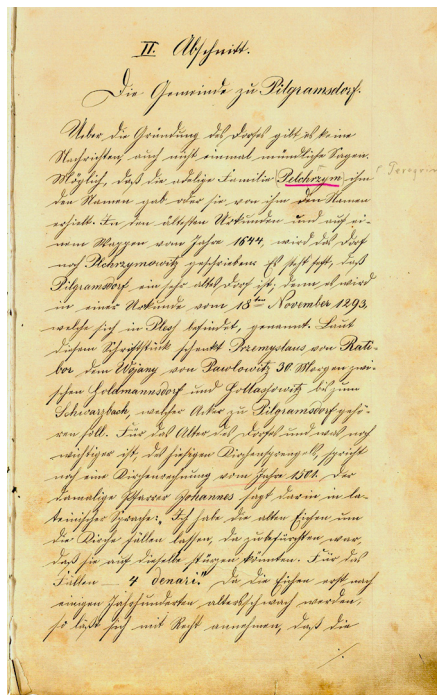 II. Abschnitt.
Die Gemeinde zu Pilgramsdorf.
Ueber die Gründung des Dorfes gibt es keine
Nachrichten, auch nicht einmal mündliche Sagen.
Möglich, daß die adelige Familie Pelchrzym ihm
den Namen gab oder sie von ihm den Namen
erhielt. In den ältesten Urkunden und auf ei-
nem Wappen vom Jahre 1644, wird das Dorf
noch Pilchrzymowitz geschrieben. Es steht fest, daß
Pilgramsdorf ein sehr altes Dorf ist, denn es wird
in einer Urkunde vom 18ten November 1293,
welche sich in Pless befindet, genannt. Laut
diesem Schriftstück schenkt Przemyslaus von Rati-
bor dem Wojany von Pawlowitz 30 Morgen zwi-
schen Goldmannsdorf und Gollassowitz bis zum
Schwarzbach, welcher Acker zu Pilgramsdorf gehö-
ren soll. Für das Alter des Dorfes und was noch
wichtiger ist, des hiesigen Kirchensprengels, spricht
noch eine Kirchenrechnung vom Jahre 1501. Der
damalige Pfarrer Johannes sagt darin in la-
teinischer Sprache: „Ich habe die alten Eichen um
die Kirche fällen lassen, da zu befürchten war,
daß sie auf dieselbe stürzen könnten. Für das
Fällen — 4 denari." Da die Eichen erst nach
einigen Jahrhunderten altersschwach werden,
so läßt sich mit Recht annehmen, daß die
./.